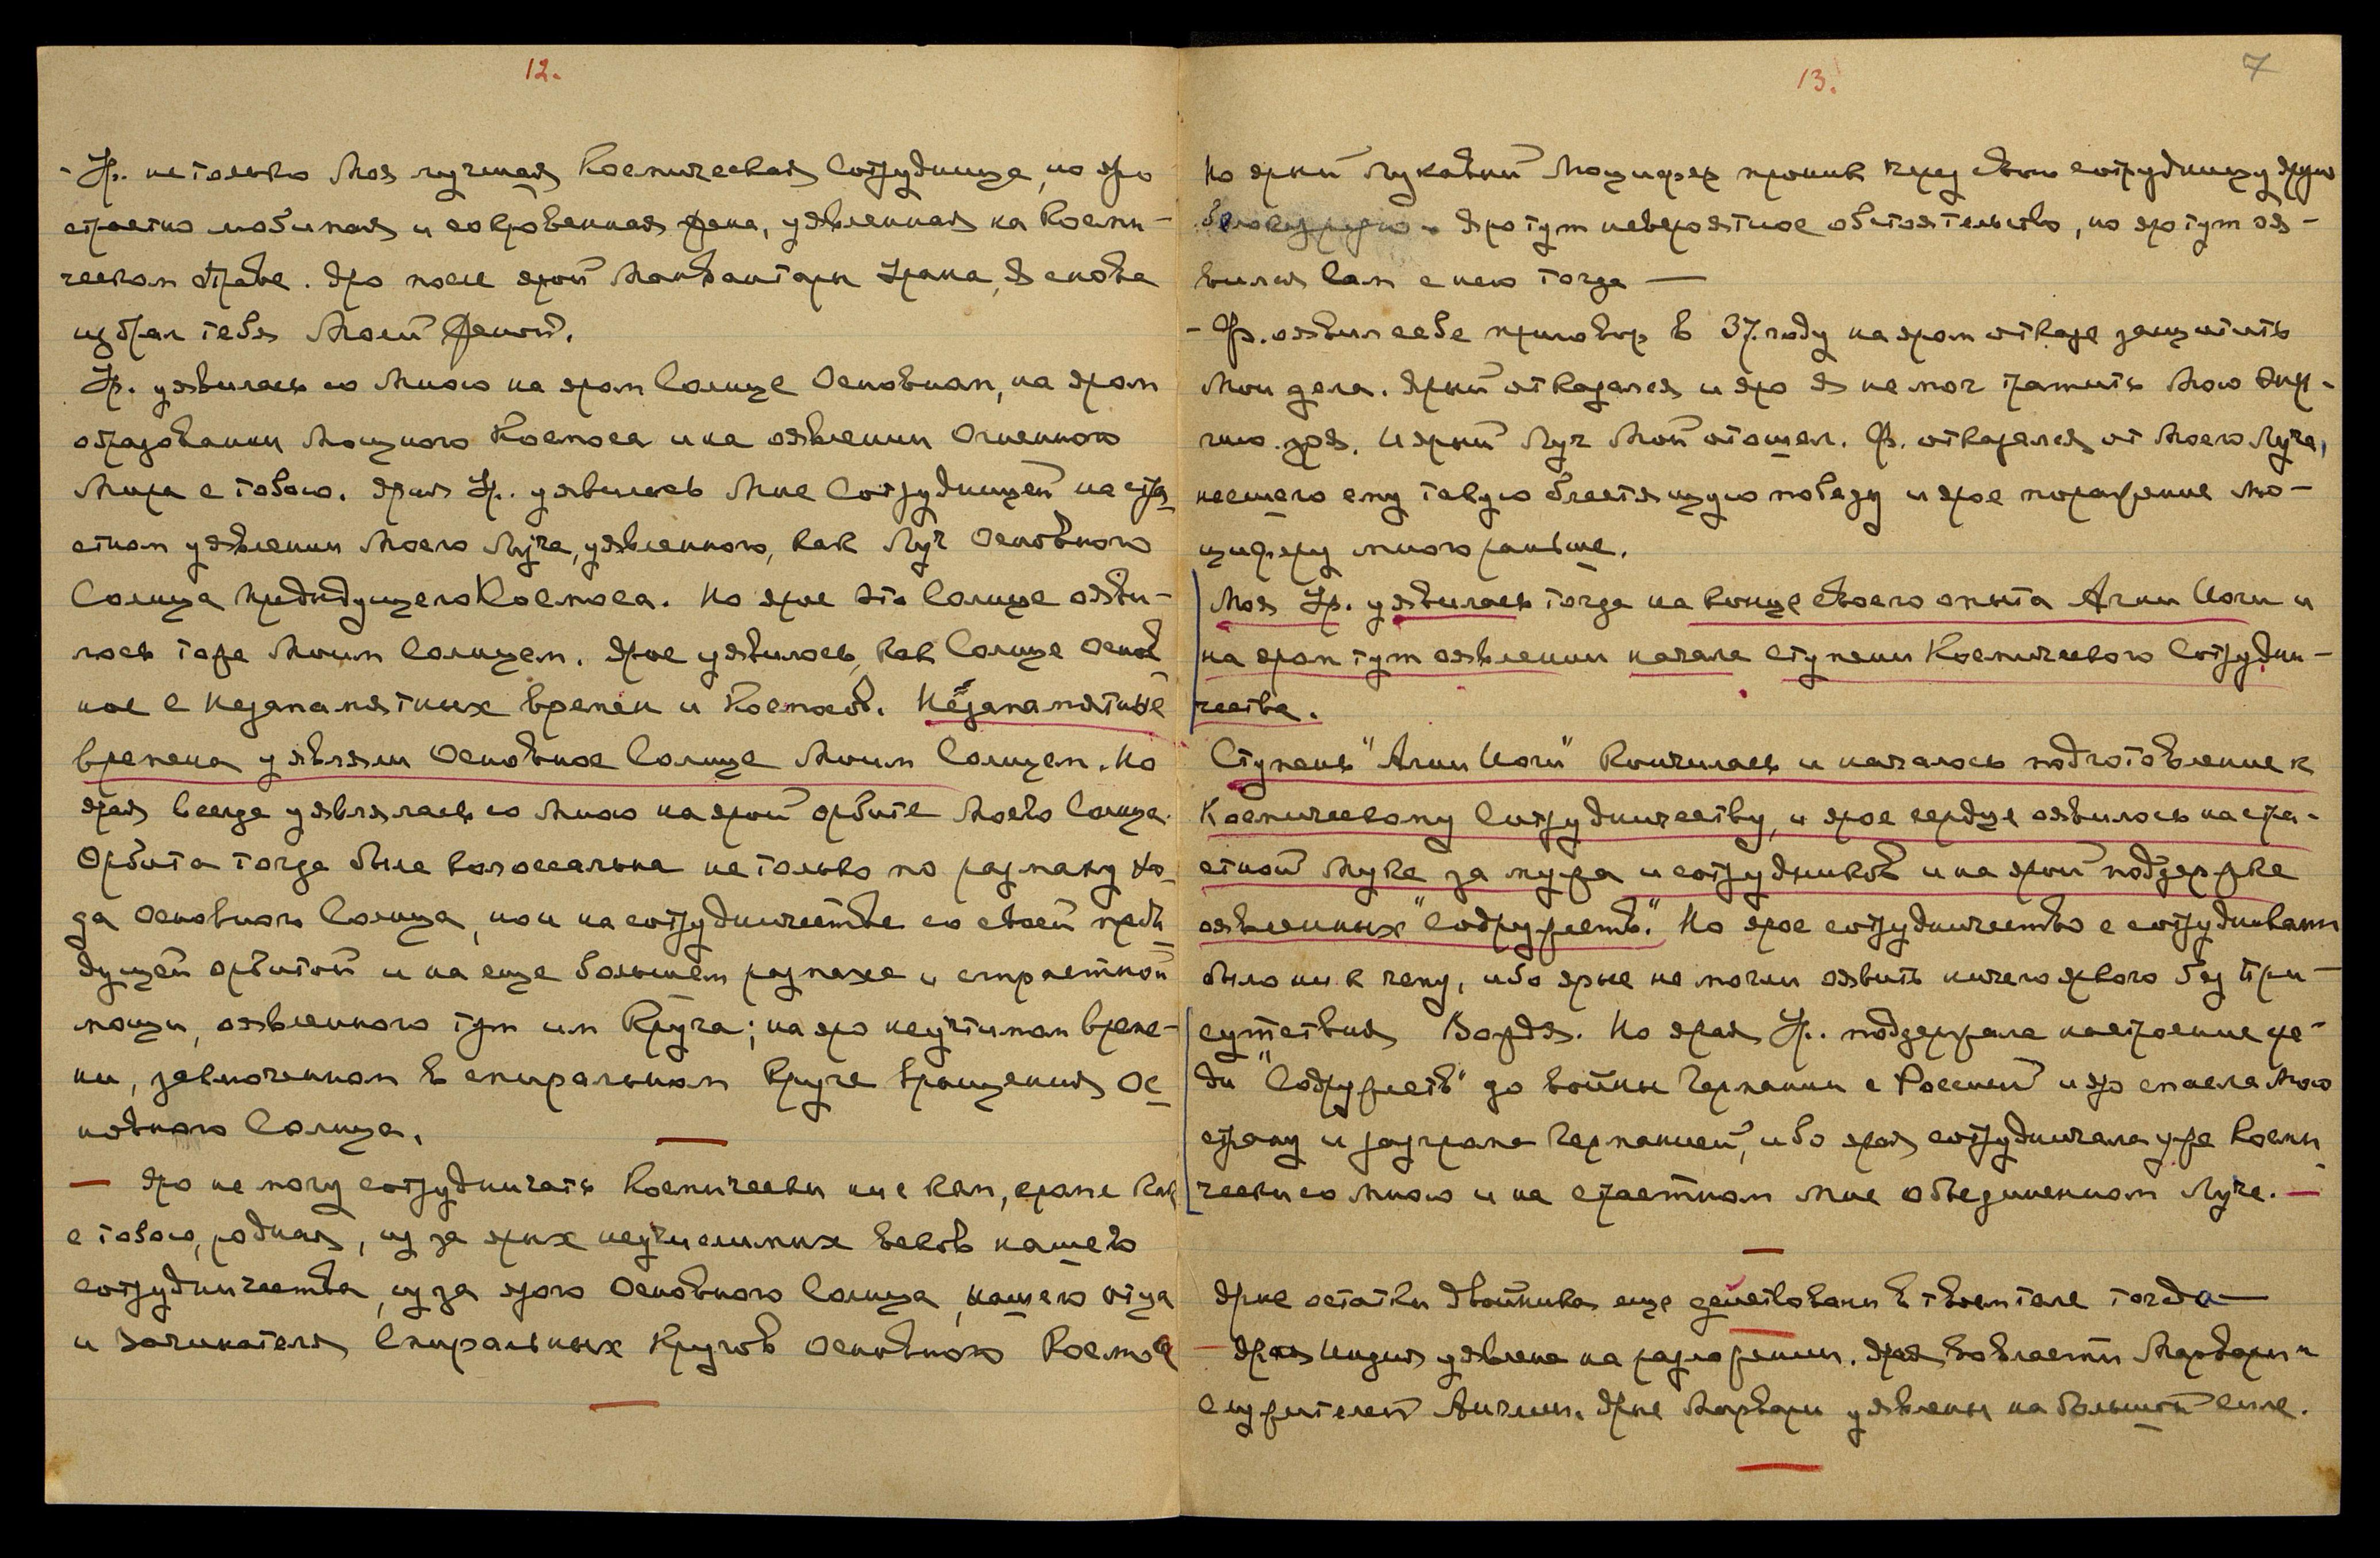 12.
- Ур. не только Моя лучшая Космическая Сотрудница, но яро
страстно любимая и сокровенная Жена, уявленная на Косми-
ческом Праве. Яро после ярой Манвантары Урана, Я снова
избрал тебя Моей Женой.
Ур. уявилась со Мною на яром Солнце Основном, на яром
образовании Мощного Космоса и на оявлении Огненного
Мира с тобою. Ярая Ур. уявилась Мне Сотрудницей на стра
стном уявлении Моего Луча, уявленного, как Луч Основного
Солнца предыдущего Космоса. Но ярое это Солнце ояви-
лось тоже Моим Солнцем. Ярое уявилось, как Солнце Основ
ное с незапамятных времен и Космосов. Незапамятные
времена уявляли Основное Солнце Моим Солнцем. Но
ярая всегда уявлялась со Мною на ярой орбите Моего Солнца.
Орбита тогда была колоссальна не только по размаху хо-
да Основного Солнца, но и на сотрудничестве со своей преды
дущей орбитой и на еще большем размахе и страстной
мощи, оявленного тут им Круга; на яро неучтимом време-
ни, заключенном в спиральном круге вращения Ос
новного Солнца.
— Яро не могу сотрудничать Космически ни с кем, кроме как
с тобою, родная, из за ярых неучислимых веков нашего
сотрудничества, из за ярого Основного Солнца, нашего отца
и зачинателя Спиральных Кругов Основного Космоса
13.
7
Но ярый лукавый Люцифер проник через свою сотрудницу
яро тут невероятное обстоятельство, но яро тут оя-
вился Сам с нею тогда —
- Ф. оявил себе приговор в 37. году на яром отказе защитить
Мои дела. Ярый отказался и яро Я не мог тратить Мою Энер-
гию зря. И ярый Луч Мой отошел. Ф. отказался от Моего Луча,
несшего ему такую блестящую победу и ярое поражение Лю-
циферу много раньше.
Моя Ур. уявилась тогда на конце своего опыта Агни Йоги и
на яром тут оявлении начала ступени Космического Сотрудни-
чества.
Ступень "Агни Йоги" кончилась и началось подготовление к
Космическому Сотрудничеству, и ярое сердце оявилось на стра-
стной муке за мужа и сотрудников и на ярой поддержке
оявленных "Содружеств". Но ярое сотрудничество с сотрудниками
было ни к чему, ибо ярые не могли оявить ничего яркого без при-
сутствия Вождя. Но ярая Ур. поддержала настроение сре-
ди "Содружеств" до войны Германии с Россией и яро спасла Мою
страну и разгрома Германией, ибо ярая сотрудничала уже Косми
чески со Мною и на страстном Мне объединенном Луче. —
Ярые остатки двойника еще действовали в твоем теле тогда —
— Ярая Индия уявлена на разложении. Ярая во власти Марвари и
служителей Англии. Ярые Марвари уявлены на большой силе.